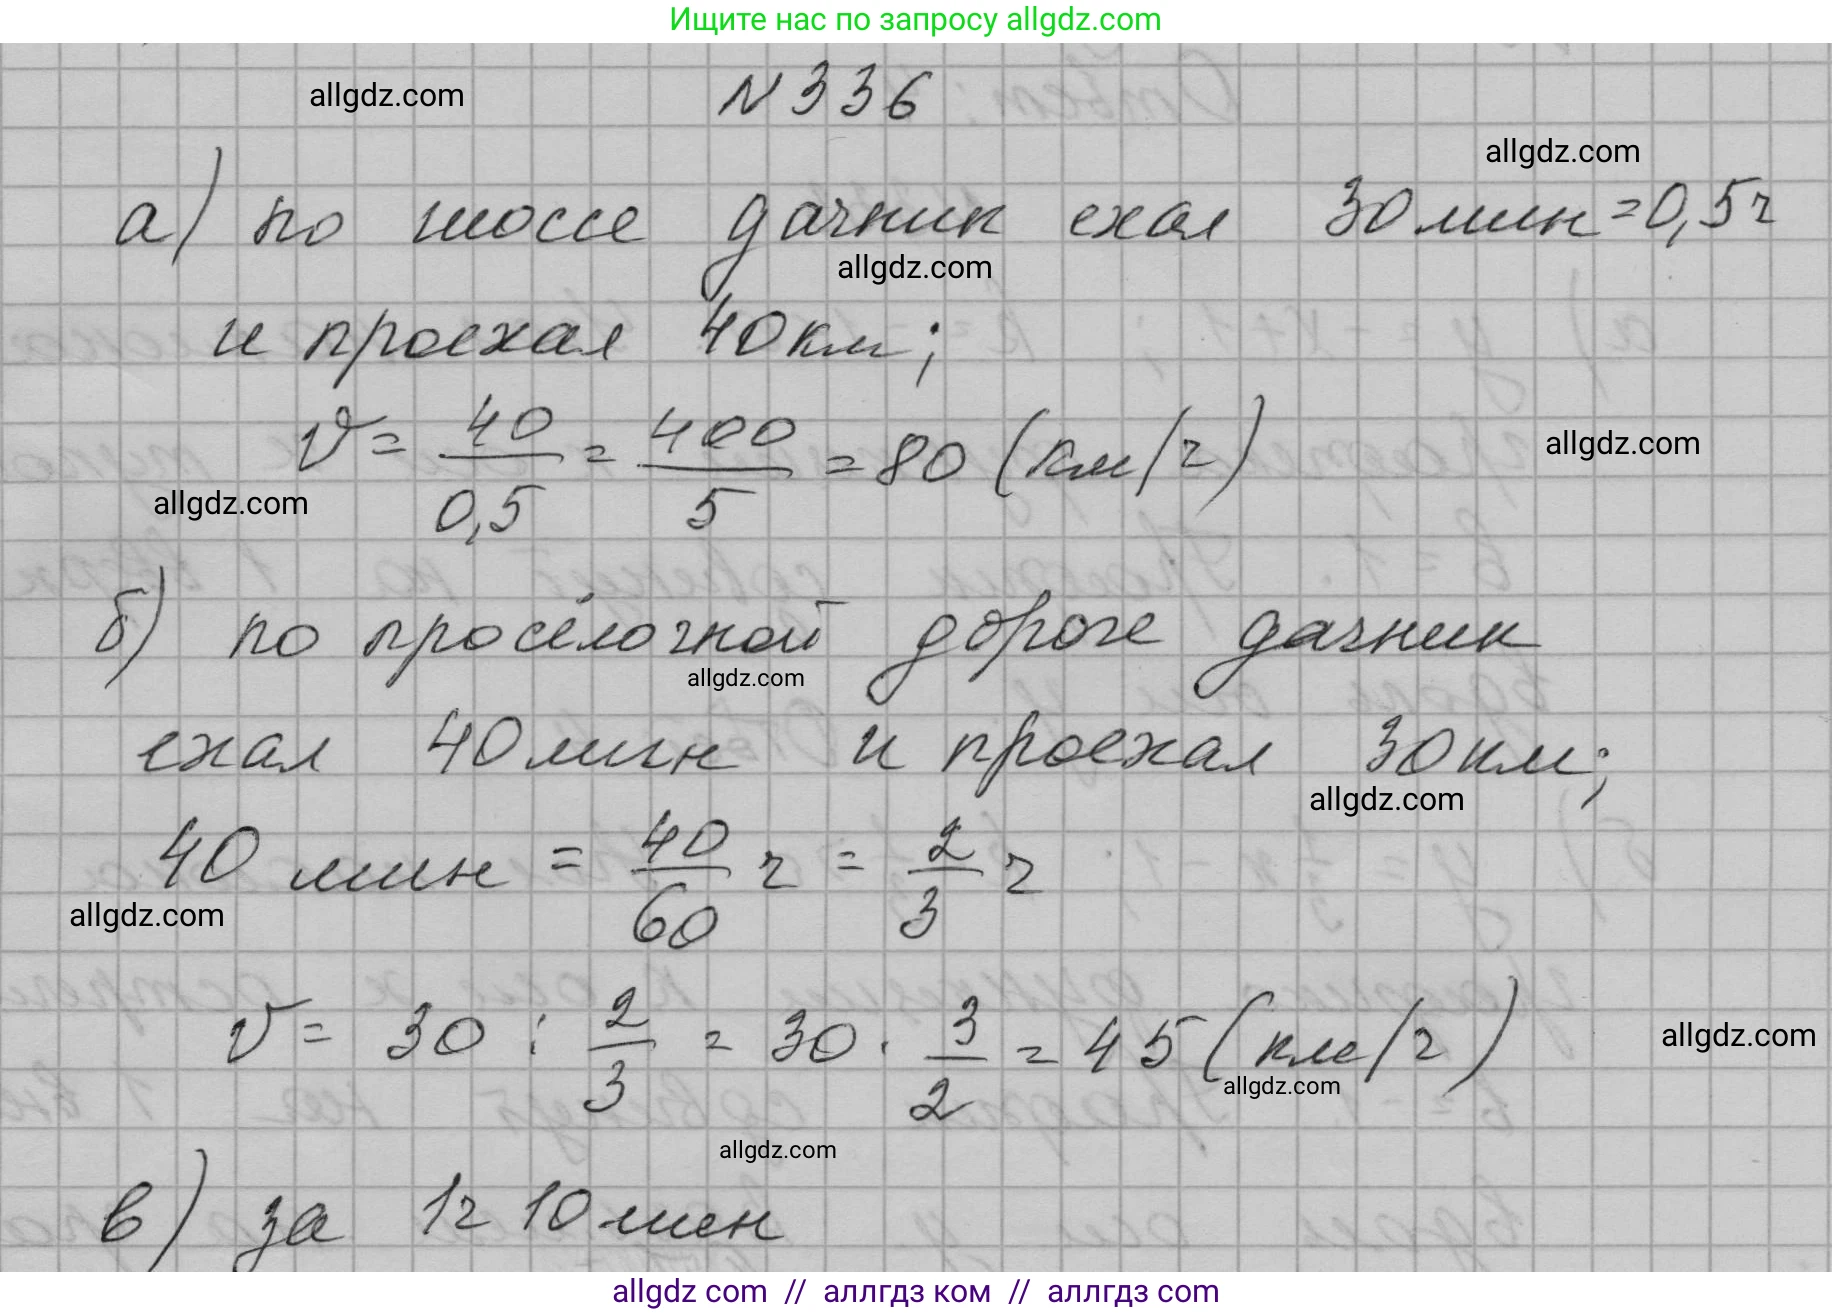 Ищите нас по запросу allgdz.com
allgdz.com
N 336
allgdz.com
а) по шоссе дачник ехал 30 мин = 0,5 ч
allgdz.com
и проехал 40 км;
v = 40/0,5 = 400/5 = 80 (км/ч)
allgdz.com
allgdz.com
б) по просёлочной дороге дачник
allgdz.com
ехал 40 мин и проехал 30 км;
allgdz.com
40 мин = 40/60 ч = 2/3 ч
allgdz.com
v = 30 : 2/3 = 30 · 3/2 = 45 (км/ч)
allgdz.com
allgdz.com
allgdz.com
в) за 1ч 10 мин
allgdz.com // аллгдз ком // аллгдз.com